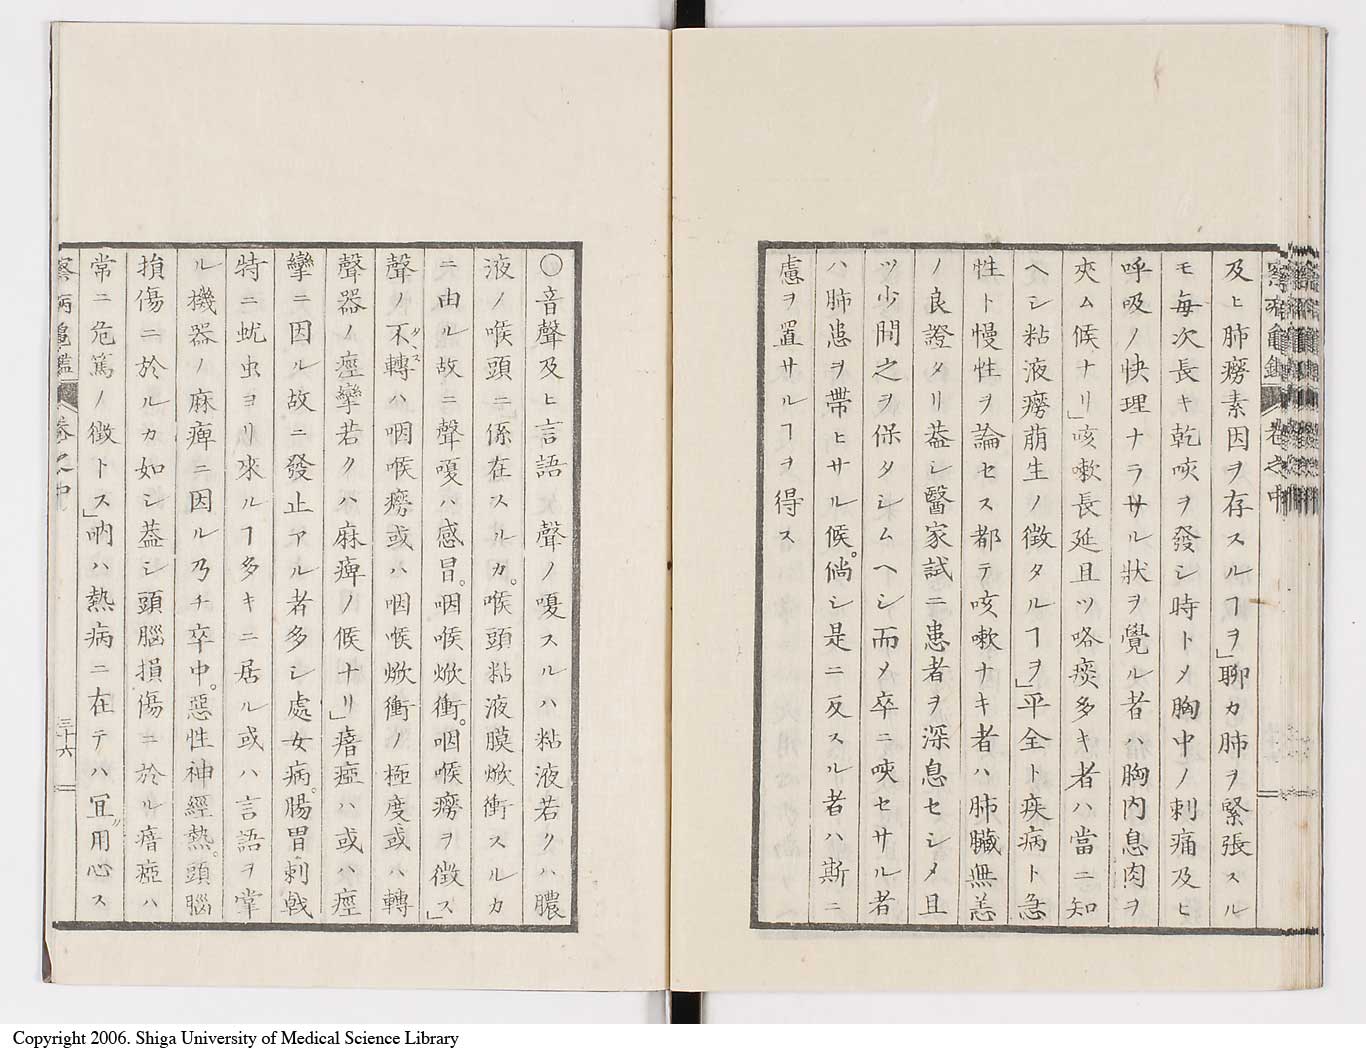 及ヒ肺癆素因ヲ存スルヿヲ」聊カ肺ヲ緊張スル
モ毎次長キ乾咳ヲ發シ時トメ胸中ノ刺痛及ヒ
呼吸ノ快理ナラサル狀ヲ覺ル者ハ胸內息肉ヲ
夾ム候ナリ」咳嗽長延且ツ咯痰多キ者ハ當ニ知
ヘシ粘液癆萠生ノ徵タルヿヲ」平全ト疾病ト急
性ト慢性ヲ論セス都テ咳嗽ナキ者ハ肺臟無恙
ノ良證タリ葢シ醫家試ニ患者ヲ深息セシメ且
ツ少間之ヲ保タシムヘシ而メ卒ニ咳セサル者
ハ肺患ヲ帶ヒサル候。倘シ是ニ反スル者ハ斯ニ
慮ヲ置サルヿヲ得ス
察病龜鑑 卷之中
〇音聲及ヒ言語 聲ノ嗄スルハ粘液若クハ膿
液ノ喉頭ニ」係在スルカ。喉頭粘液膜焮衝スルカ
ニ由ル故ニ聲嗄ハ感冒。咽喉焮衝。咽喉癆ヲ徵ス」
聲ノ不轉ハ咽喉癆或ハ咽喉焮衝ノ極度或ハ轉
聲器ノ痙攣若クハ麻痺ノ候ナリ」瘖瘂ハ或ハ痙
攣ニ因ル故ニ發止アル者多シ處女病。腸胃刺戟
特ニ蚘虫ヨリ來ルヿ多キニ居ル或ハ言語ヲ掌
ル機器ノ麻痺ニ因ル乃チ卒中。惡性神經熱。頭腦
損傷ニ於ルカ如シ葢シ頭腦損傷ニ於ル瘖瘂ハ
常ニ危篤ノ徵トス」吶ハ熱病ニ在テハ冝用心ス
察病龜鑑 卷之中 三十六
Copyright 2006. Shiga University of Medical Science Library